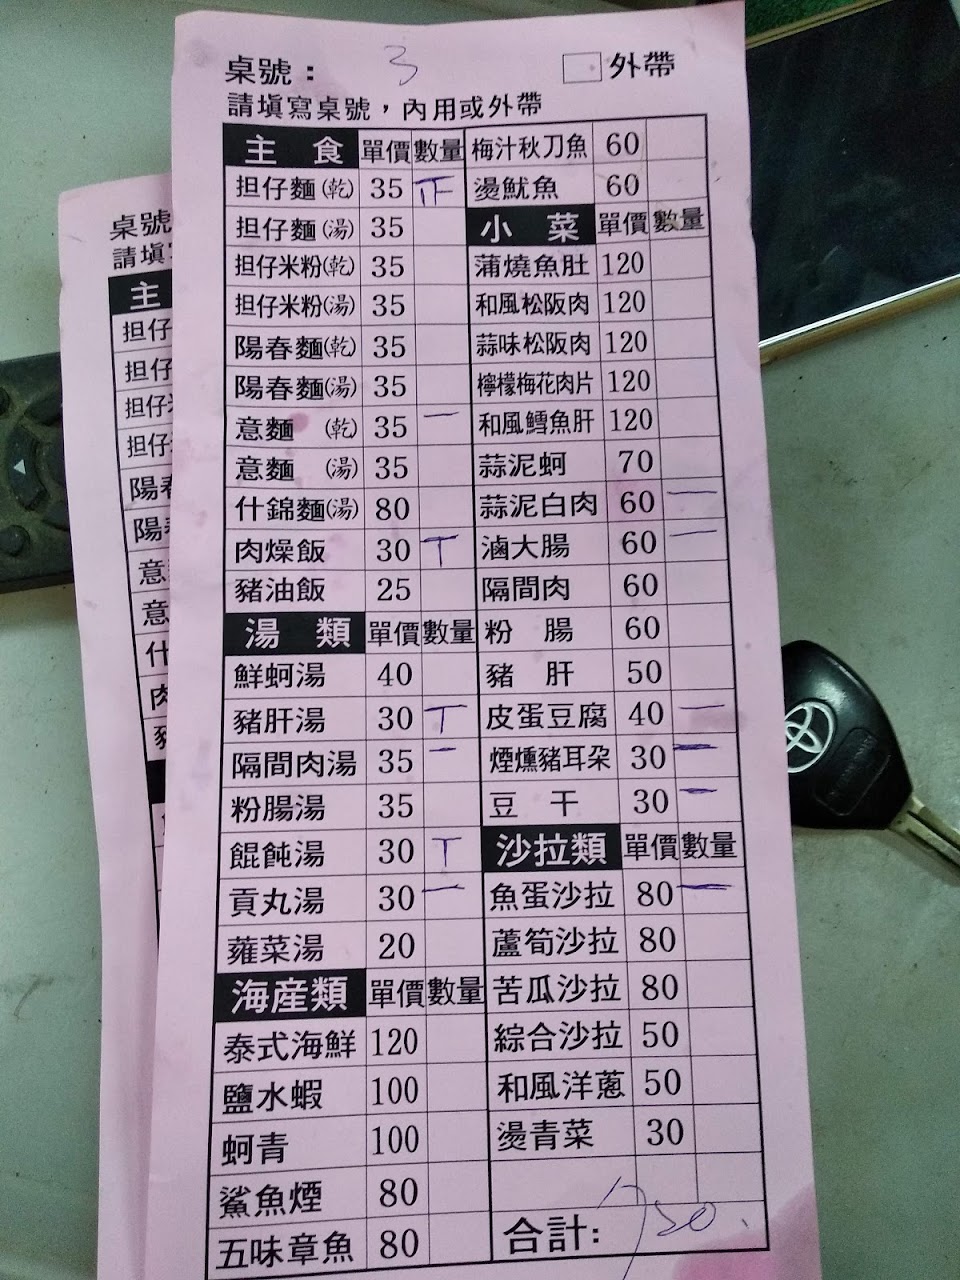 桌號： 3 外帶
請填寫桌號，內用或外帶
主 食 單價 數量
担仔麵(乾) 35
担仔麵(湯) 35
担仔米粉(乾) 35
担仔米粉(湯) 35
陽春麵(乾) 35
陽春麵(湯) 35
意麵 (乾) 35 一
意麵 (湯) 35
什錦麵(湯) 80
肉燥飯 30 T
豬油飯 25
湯 類 單價 數量
鮮蚵湯 40
豬肝湯 30 T
隔間肉湯 35 一
粉腸湯 35
餛飩湯 30 T
貢丸湯 30 一
蕹菜湯 20
海産類 單價 數量
泰式海鮮 120
鹽水蝦 100
蚵青 100
鯊魚煙 80
五味章魚 80
梅汁秋刀魚 60
燙魷魚 60
小 菜 單價 數量
蒲燒魚肚 120
和風松阪肉 120
蒜味松阪肉 120
檸檬梅花肉片 120
和風鱈魚肝 120
蒜泥蚵 70
蒜泥白肉 60 一
滷大腸 60 一
隔間肉 60
粉 腸 60
豬 肝 50
皮蛋豆腐 40 一
煙燻豬耳朶 30 一
豆 干 30 一
沙拉類 單價 數量
魚蛋沙拉 80 一
蘆筍沙拉 80
苦瓜沙拉 80
綜合沙拉 50
和風洋蔥 50
燙青菜 30
合計:
桌號
請填
主
担仔
担仔
担仔
担仔
陽春
陽
意
意
什
肉